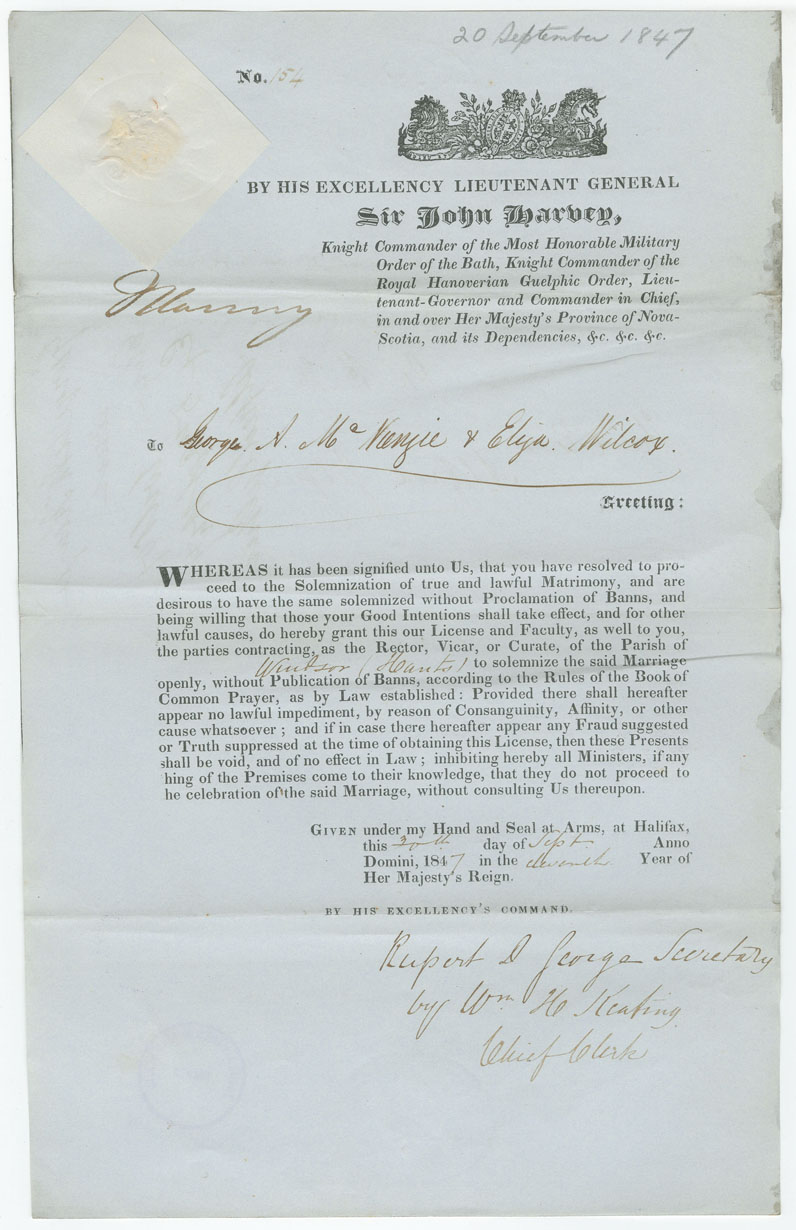 20 September 1847
No. 154
BY HIS EXCELLENCY LIEUTENANT GENERAL
Sir John Harvey,
Knight Commander of the Most Honorable Military
Order of the Bath, Knight Commander of the
Royal Hanoverian Guelphic Order, Lieu-
tenant-Governor and Commander in Chief,
in and over Her Majesty's Province of Nova-
Scotia, and its Dependencies, &c. &c. &c.
To George. A. McKenzie & Eliza. Wilcox.
Greeting:
WHEREAS it has been signified unto Us, that you have resolved to pro-
ceed to the Solemnization of true and lawful Matrimony, and are
desirous to have the same solemnized without Proclamation of Banns, and
being willing that those your Good Intentions shall take effect, and for other
lawful causes, do hereby grant this our License and Faculty, as well to you,
the parties contracting, as the Rector, Vicar, or Curate, of the Parish of
Windsor (Hants) to solemnize the said Marriage
openly, without Publication of Banns, according to the Rules of the Book of
Common Prayer, as by Law established: Provided there shall hereafter
appear no lawful impediment, by reason of Consanguinity, Affinity, or other
cause whatsoever; and if in case there hereafter appear any Fraud suggested
or Truth suppressed at the time of obtaining this License, then these Presents
shall be void, and of no effect in Law; inhibiting hereby all Ministers, if any
hing of the Premises come to their knowledge, that they do not proceed to
he celebration of the said Marriage, without consulting Us thereupon.
GIVEN under my Hand and Seal at Arms, at Halifax,
this 20th day of Sept Anno
Domini, 1847 in the eleventh Year of
Her Majesty's Reign.
BY HIS EXCELLENCY'S COMMAND.
Rupert D George Secretary
by Wm H Keating
Chief Clerk